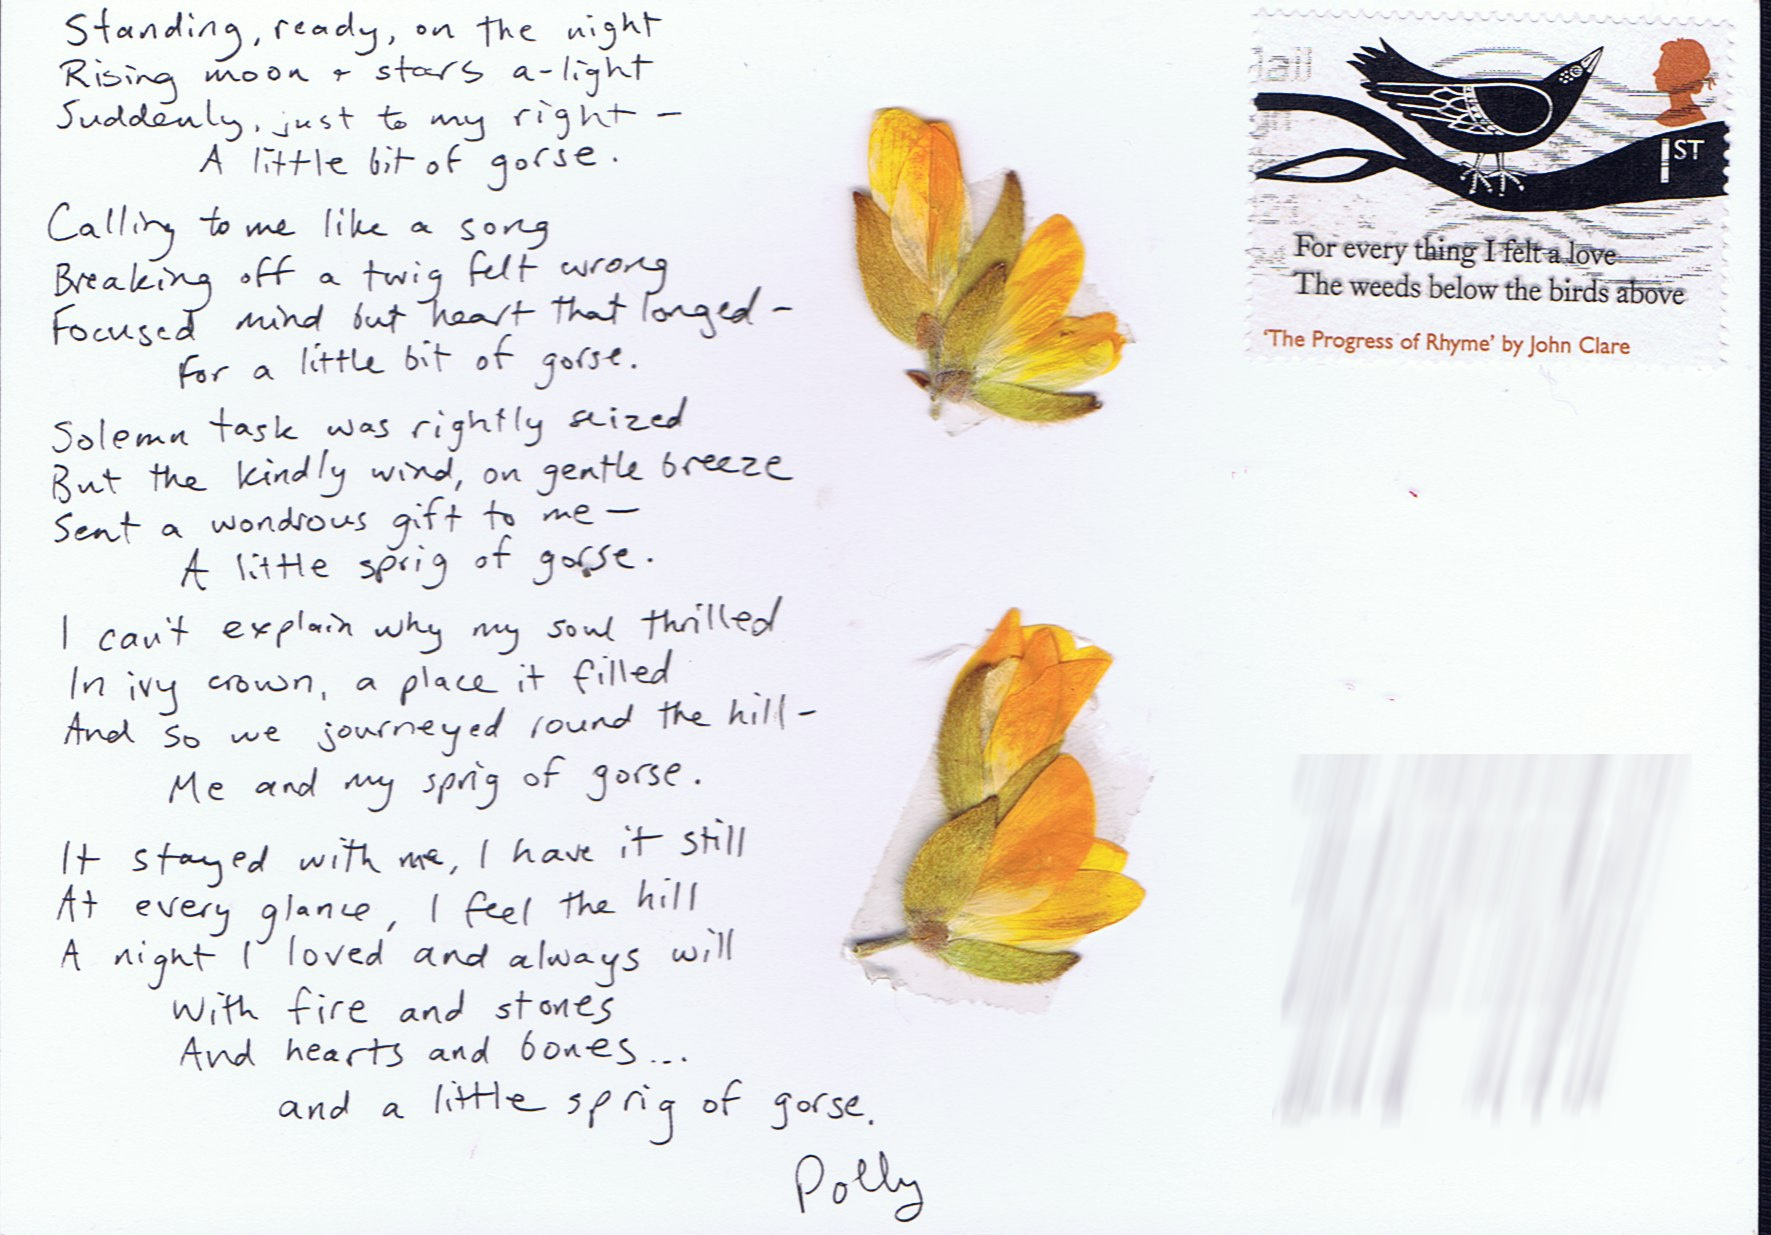 Standing, ready, on the night
Rising moon + stars a-light
Suddenly, just to my right –
A little bit of gorse.
Calling to me like a song
Breaking off a twig felt wrong
Focused mind but heart that longed –
For a little bit of gorse.
Solemn task was rightly seized
But the kindly wind, on gentle breeze
Sent a wondrous gift to me –
A little sprig of gorse.
I can't explain why my soul thrilled
In ivy crown, a place it filled
And so we journeyed round the hill –
Me and my sprig of gorse.
It stayed with me, I have it still
At every glance, I feel the hill
A night I loved and always will
With fire and stones
And hearts and bones...
and a little sprig of gorse.
Polly
1ST
For every thing I felt a love
The weeds below the birds above
'The Progress of Rhyme' by John Clare